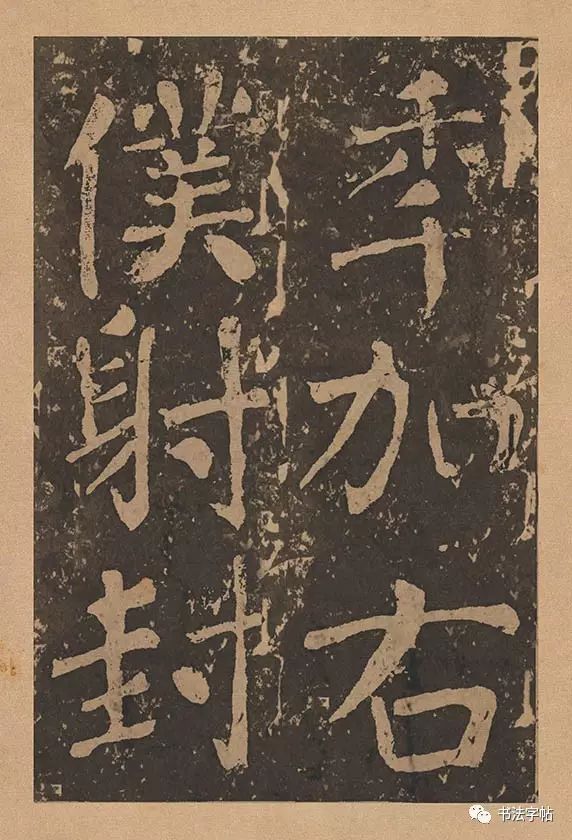 秊加右
僕射封
书法字帖